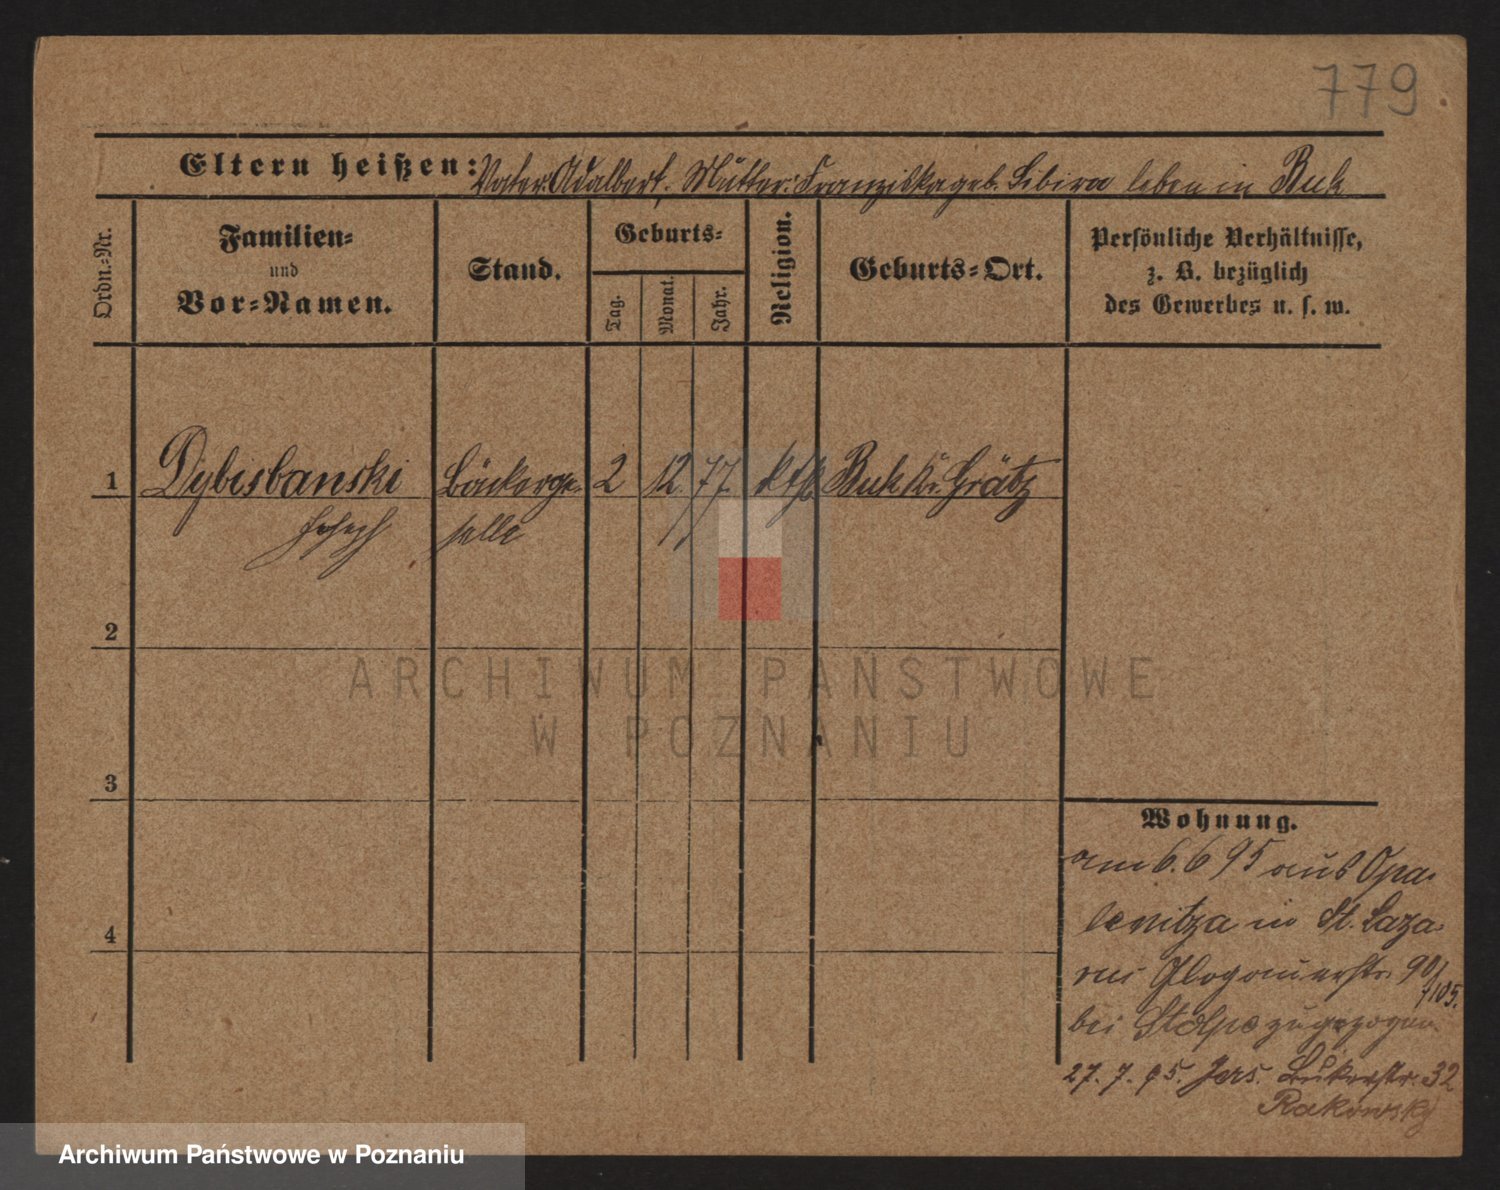 779
Eltern heißen: Vater: Adalbert. Mutter: Franziska geb. Sibira leben in Buk
Ordn.=Nr.
Familien=
und
Vor=Namen.
Stand.
Geburts=
Tag.
Monat.
Jahr.
Religion.
Geburts=Ort.
Persönliche Verhältnisse,
z. B. bezüglich
des Gewerbes u. s. w.
1 Dybisbanski Bäckerge= 2 12. 77. kth. Buk Kr. Grätz
Joseph selle
2
ARCHIWUM PAŃSTWOWE
W POZNANIU
3
Wohnung.
am 6. 6 95 aus Opa=
lenitza in St. Laza=
rus Glogauerstr. 90/
7105.
bei Stolpe zugezogen.
27. 7. 95. Jers. 32
Rakowski
4
Archiwum Państwowe w Poznaniu